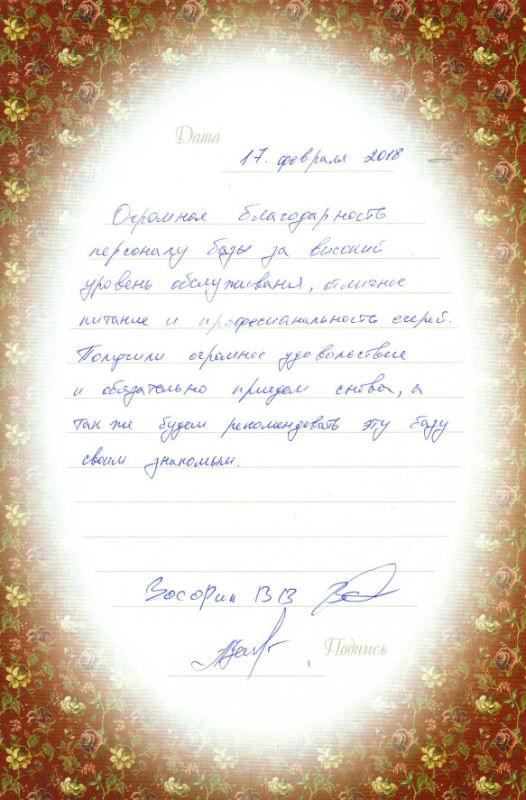 Дата
17. февраля 2018
Огромная благодарность
персоналу базы за високий
уровень обслуживания, отличное
питание и професианальность егерей.
Получили огромное удовольствие
и обязательно приедем снова, а
так же будем рекомендовать эту базу
своим знакомым.
ВВ
Подпись